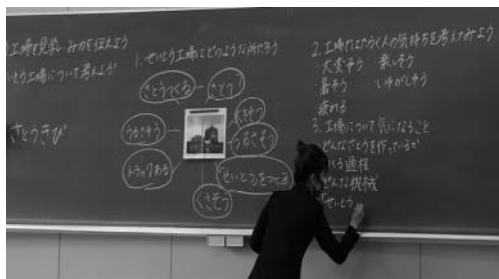 工場を見学しみ力を伝えよう
いとう工場について考えよう!
さとうきび
1.せいとう工場はどのような所だろう
さとうつくる
さとう
大きそう
うるさそう
うるさそう
トラックある
せいとうをつくる
くさそう
2.工場ではたらく人の気持ちを考えてみよう
大変そう 楽しそう
暑そう いそがしそう
疲れる
3.工場について気になること
どんなさとうを作っているか
くる過程
どんな機械
せいとう